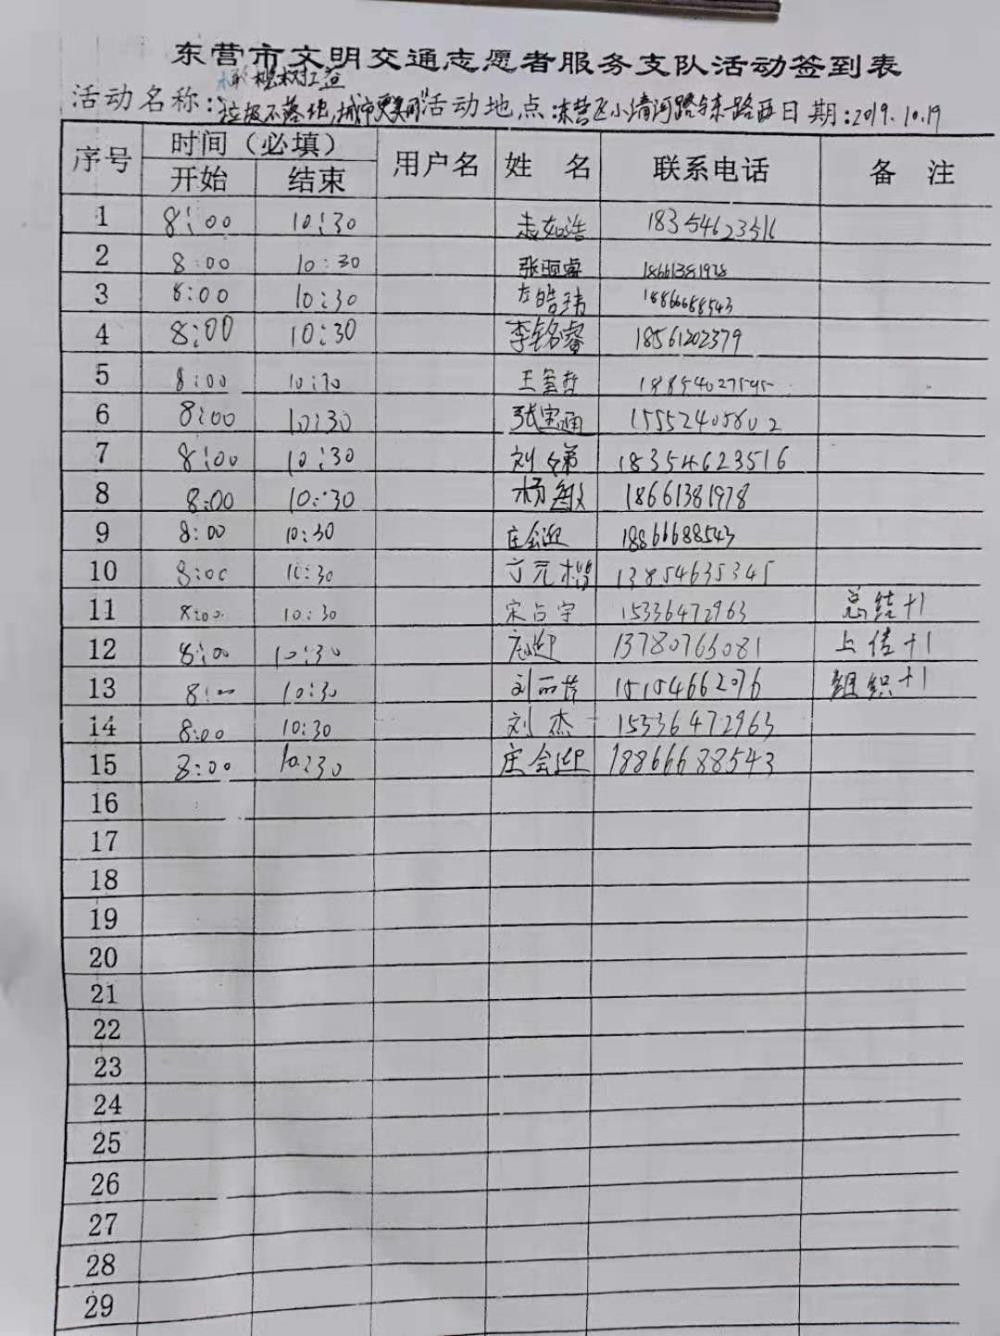 东营市文明交通志愿者服务支队活动签到表
活动名称:"垃圾不落地,城市更美丽" 活动地点:东营区小清河路与东路西 日期:2019.10.19
序号 时间(必填) 用户名 姓 名 联系电话 备 注
开始 结束
1 8:00 10:30 18354623516
2 8:00 10:30 18661381978
3 8:00 10:30 左皓玮 18866688543
4 8:00 10:30 李铭睿 18561202379
5 8:00 10:30
6 8:00 10:30 张宝涵 15552405602
7 8:00 10:30 刘 18354623516
8 8:00 10:30 杨敏 18661381978
9 8:00 10:30 庄会迎 18866688543
10 8:00 10:30 13854635345
11 8:00 10:30 宋占宇 15336472963 总结+1
12 8:00 10:30 13780765081 上传+1
13 8:00 10:30 15154662076 组织+1
14 8:00 10:30 刘杰 15336472963
15 8:00 10:30 庄会迎 18866688543
16
17
18
19
20
21
22
23
24
25
26
27
28
29